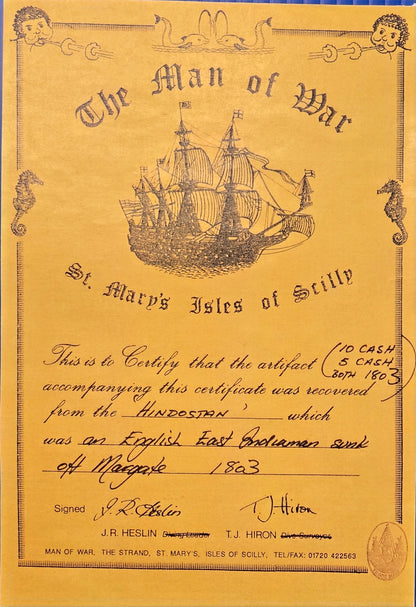 The Man of War
St. Mary's Isles of Scilly
This is to Certify that the artifact (10 CASH
5 CASH
BOTH 1803)
accompanying this certificate was recovered
from the HINDOSTAN' which
was an English East Indiaman sunk
off Margate 1803
Signed J.R. Heslin T J Hiron
J.R. HESLIN Diving Leader T.J. HIRON Dive Surveyor
MAN OF WAR, THE STRAND, ST. MARY'S, ISLES OF SCILLY, TEL/FAX: 01720 422563